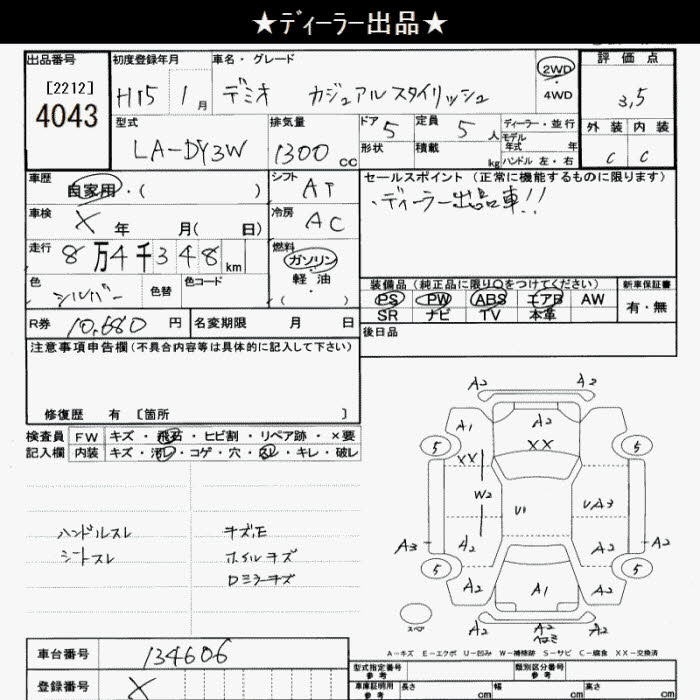 ★ディーラー出品★
出品番号
[2212]
4043
初度登録年月
H15 1月
車名・グレード
デミオ カジュアルスタイリッシュ
2WD
4WD
評価点
3,5
外装 内装
C C
型式
LA-DY3W
排気量
1300 cc
ドア 5
形状
定員 5 人
積載 kg
ディーラー・並行
モデル年式 年
ハンドル 左・右
車歴
自家用・( )
シフト
AT
車検
X 年 月( 日)
冷房
AC
走行
8万4千348km
燃料
ガソリン
軽油
( )
色
シルバー
色替
色コード
R券 10,680 円
名変期限 月 日
セールスポイント (正常に機能するものに限ります)
・ディーラー出品車!!
装備品 (純正品に限り○をつけてください)
PS PW ABS エアB AW
SR ナビ TV 本革
新車保証書
有・無
後日品
注意事項申告欄(不具合内容等は具体的に記入して下さい)
修復歴 有 〔箇所 〕
検査員
記入欄
FW キズ・飛石・ヒビ割・リペア跡・×要
内装 キズ・汚レ・コゲ・穴・スレ・キレ・破レ
ハンドルスレ
シートスレ
キズ,E
ホイルキズ
Dミラーキズ
A2 A2
A1 A2
5 XX 5
XX
W2 U1 UA3
A3 A2 A2 A2
5 5
A2 A1 A2
A2 A2 A2
スペア
A-キズ E-エクボ U-凹み W-補修跡 S-サビ C-腐食 XX-交換済
車台番号 134606
登録番号 X
型式指定番号
参考
類別区分番号
参考
車庫証明用
参考
長さ cm 幅 cm 高さ cm